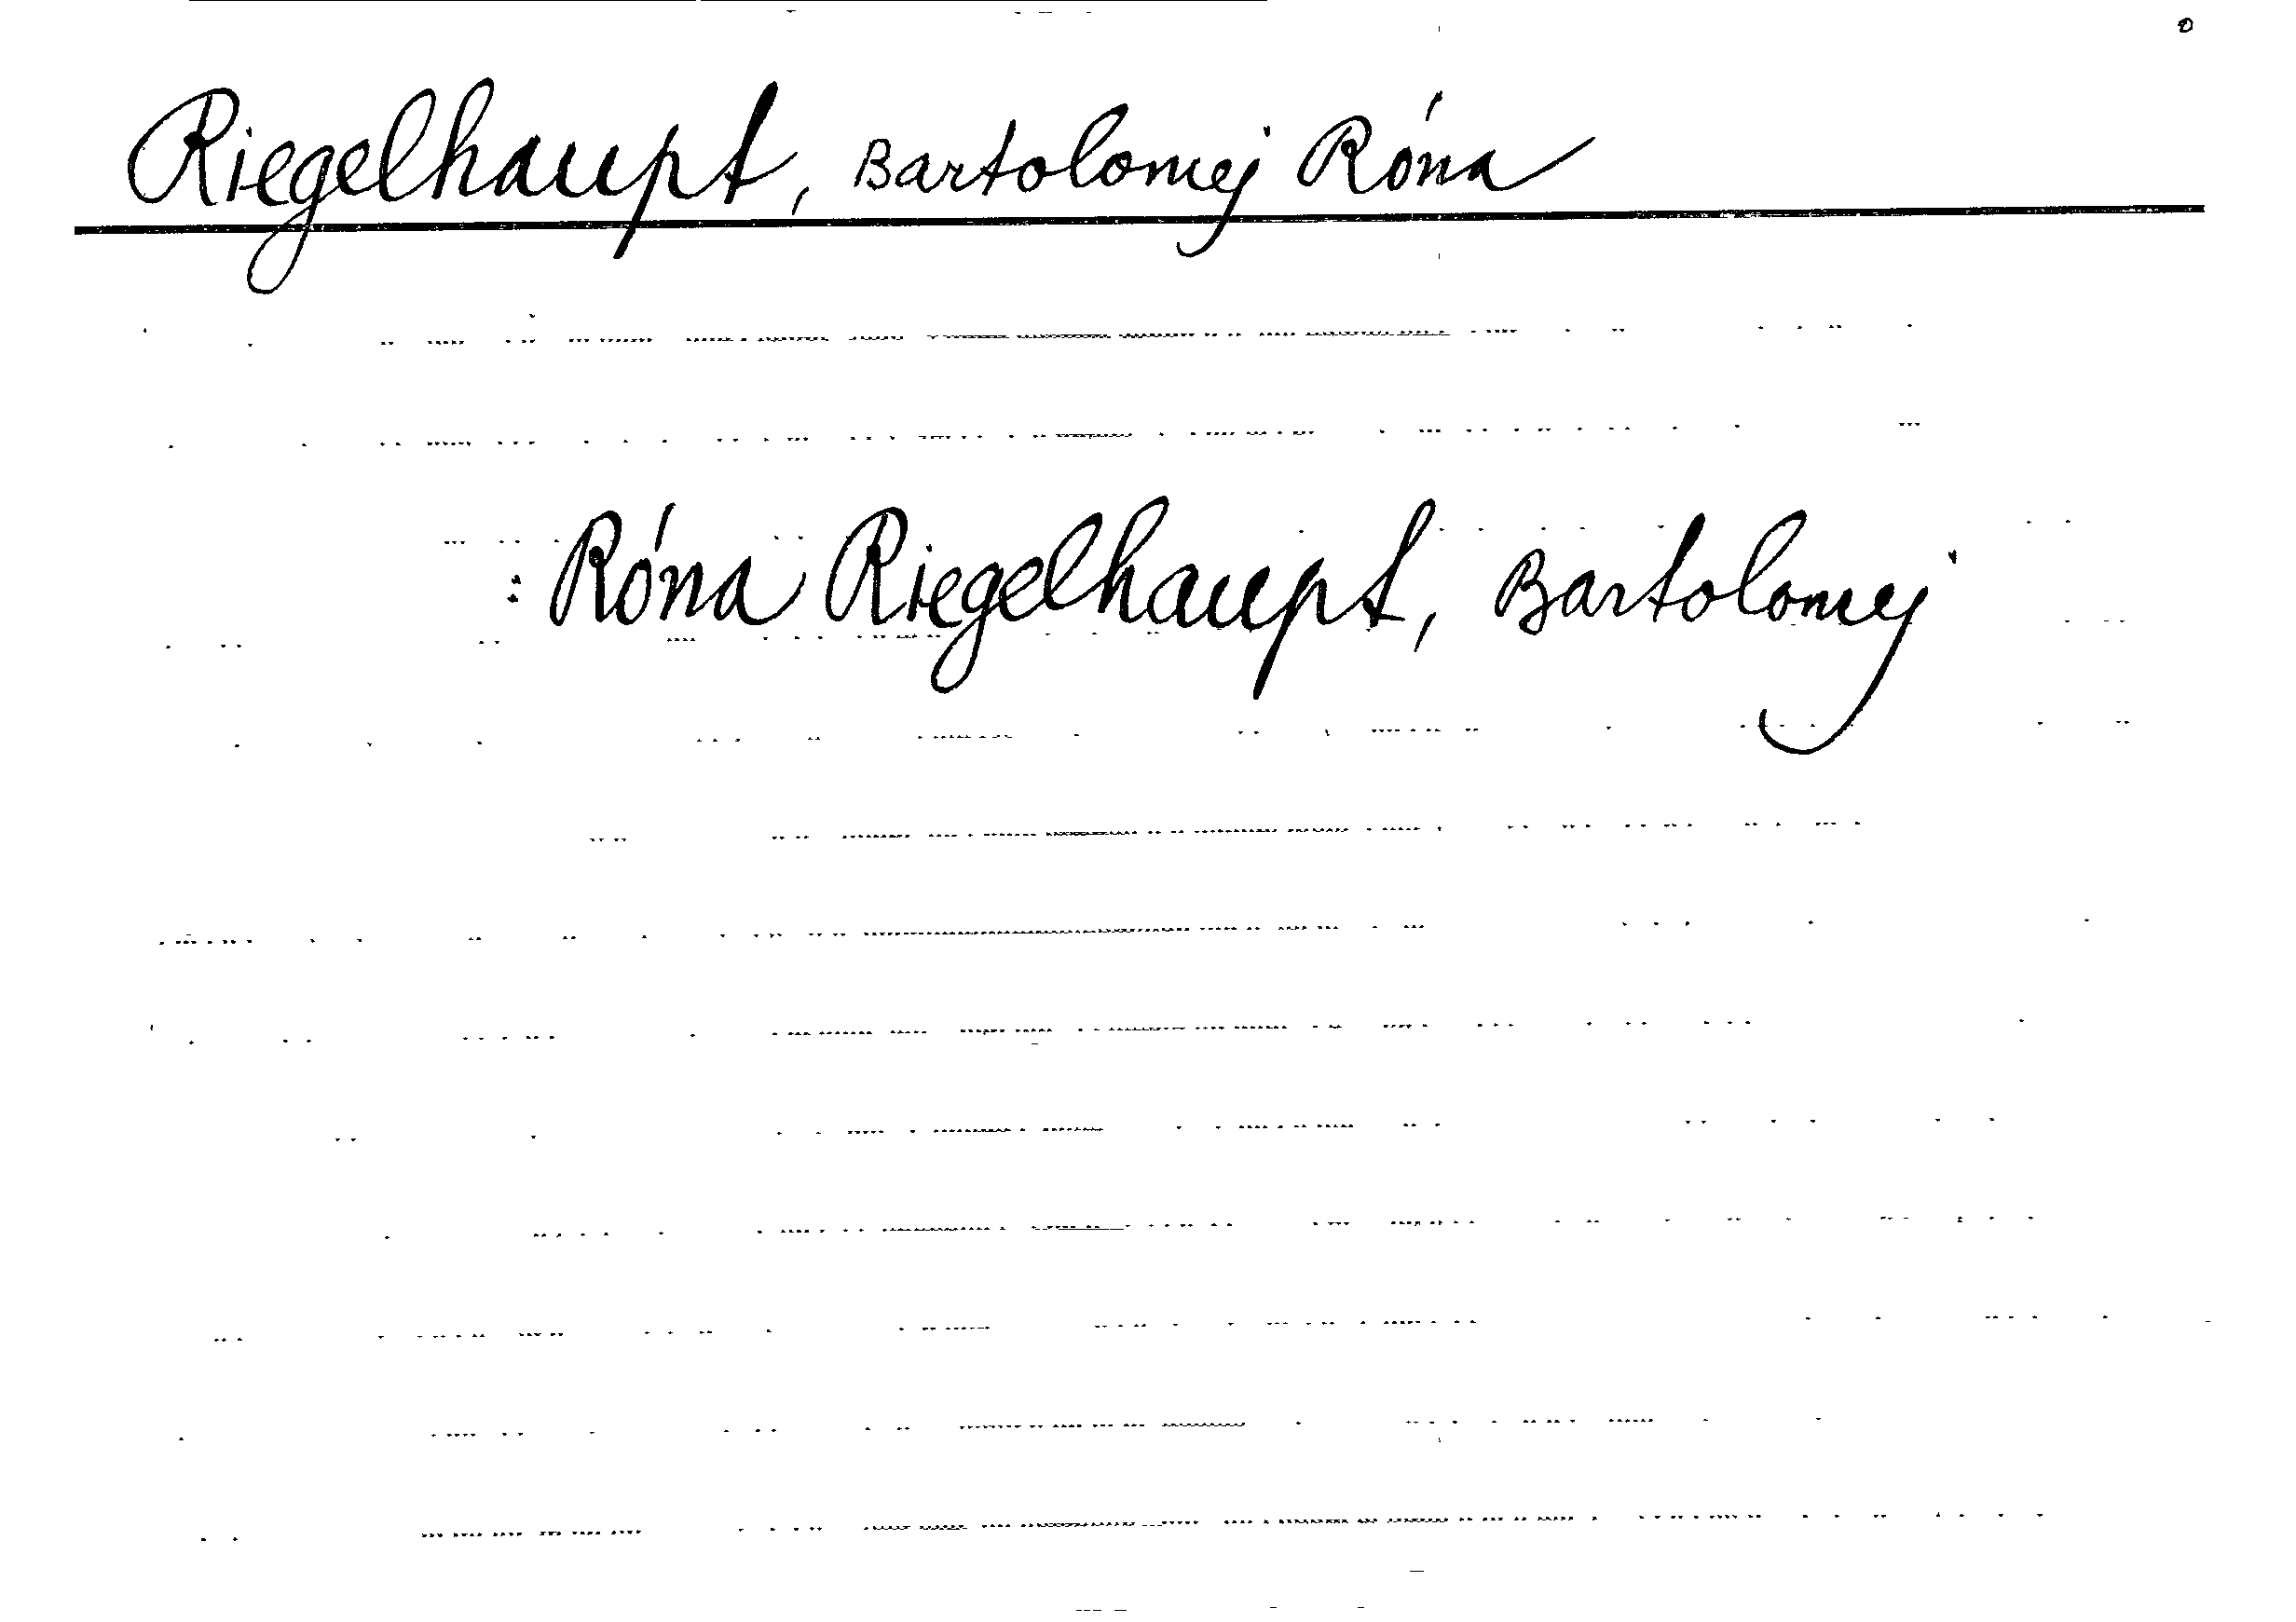 Riegelhaupt, Bartolomej Róna
: Róna Riegelhaupt, Bartolomej